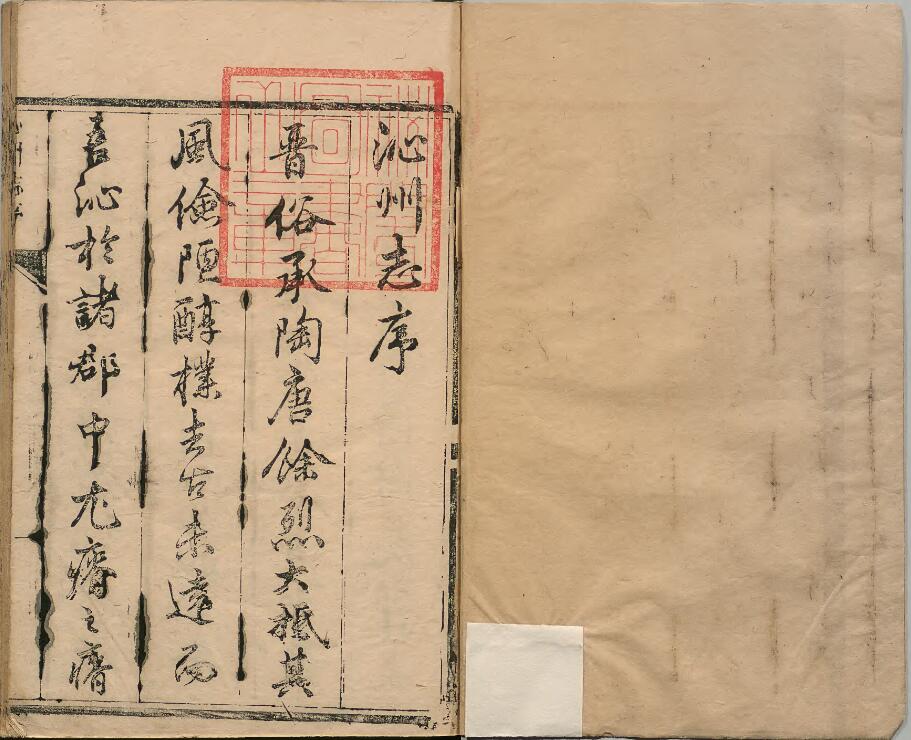 沁州志序
晋俗承陶唐餘烈大抵其
風儉陋醇樸去古未遠而
吾沁於諸郡中尤瘠之瘠